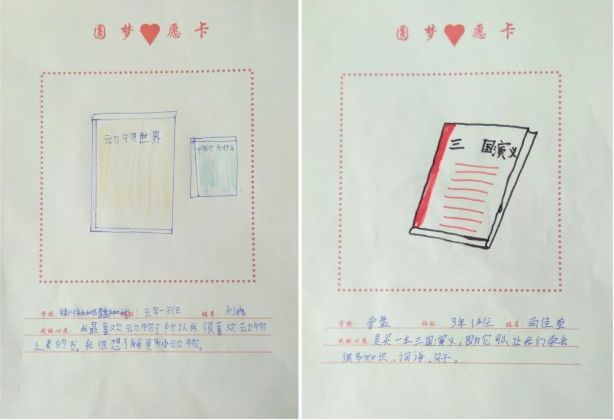 圆梦 愿卡
动物世界
十万个为什么
学校: 班级: 五年一班 姓名: 刘
我的心愿: 我最喜欢动物了所以我很喜欢动物
之类的书。我很想了解更多小动物。
圆梦 愿卡
三国演义
学校: 班级: 3年1班 姓名: 尚佳
我的心愿: 是一本三国演义,因为它能让我们学会
很多知识、词语、句子。